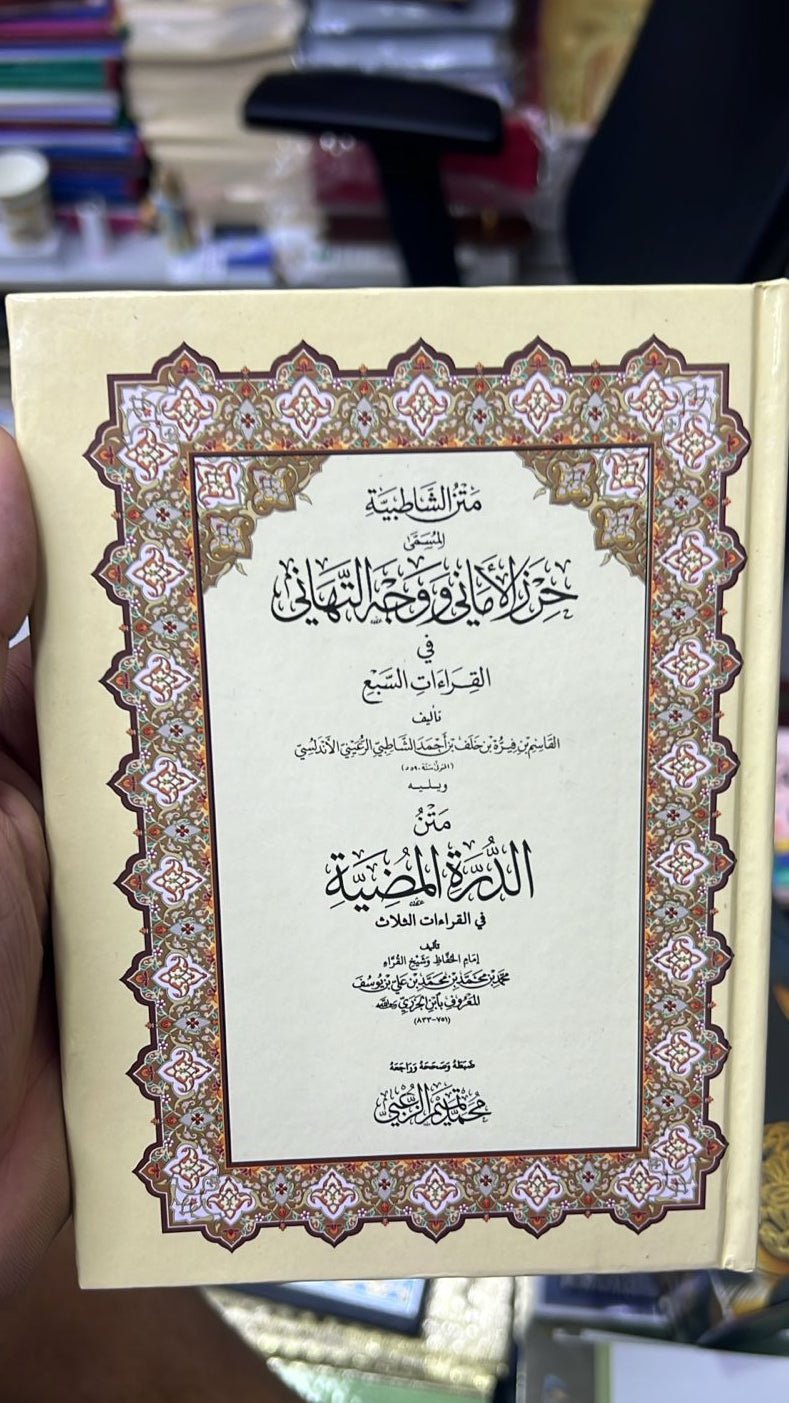 مَتْنُ الشَّاطِبِيَّةِ
المُسَمَّى
حِرْزُ الأَمَانِي وَوَجْهُ التَّهَانِي
فِي
القِرَاءَاتِ السَّبْعِ
تأليف
القَاسِمِ بْنِ فِيرُّهْ بْنِ خَلَفِ بْنِ أَحْمَدَ الشَّاطِبِيِّ الرُّعَيْنِيِّ الأَنْدَلُسِيِّ
(المتوفى سنة ٥٩٠ هـ)
ويليه
مَتْنُ
الدُّرَّةِ المُضِيَّةِ
في القراءات الثلاث
تأليف
إِمَامِ الحُفَّاظِ وَشَيْخِ القُرَّاءِ
مُحَمَّدِ بْنِ مُحَمَّدِ بْنِ مُحَمَّدِ بْنِ عَلِيِّ بْنِ يُوسُفَ
المَعْرُوفِ بِابْنِ الجَزَرِيِّ رحمه الله
(٧٥١-٨٣٣)
ضَبَطَهُ وَصَحَّحَهُ وَرَاجَعَهُ
مُحَمَّد تَمِيم الزُّعْبِي